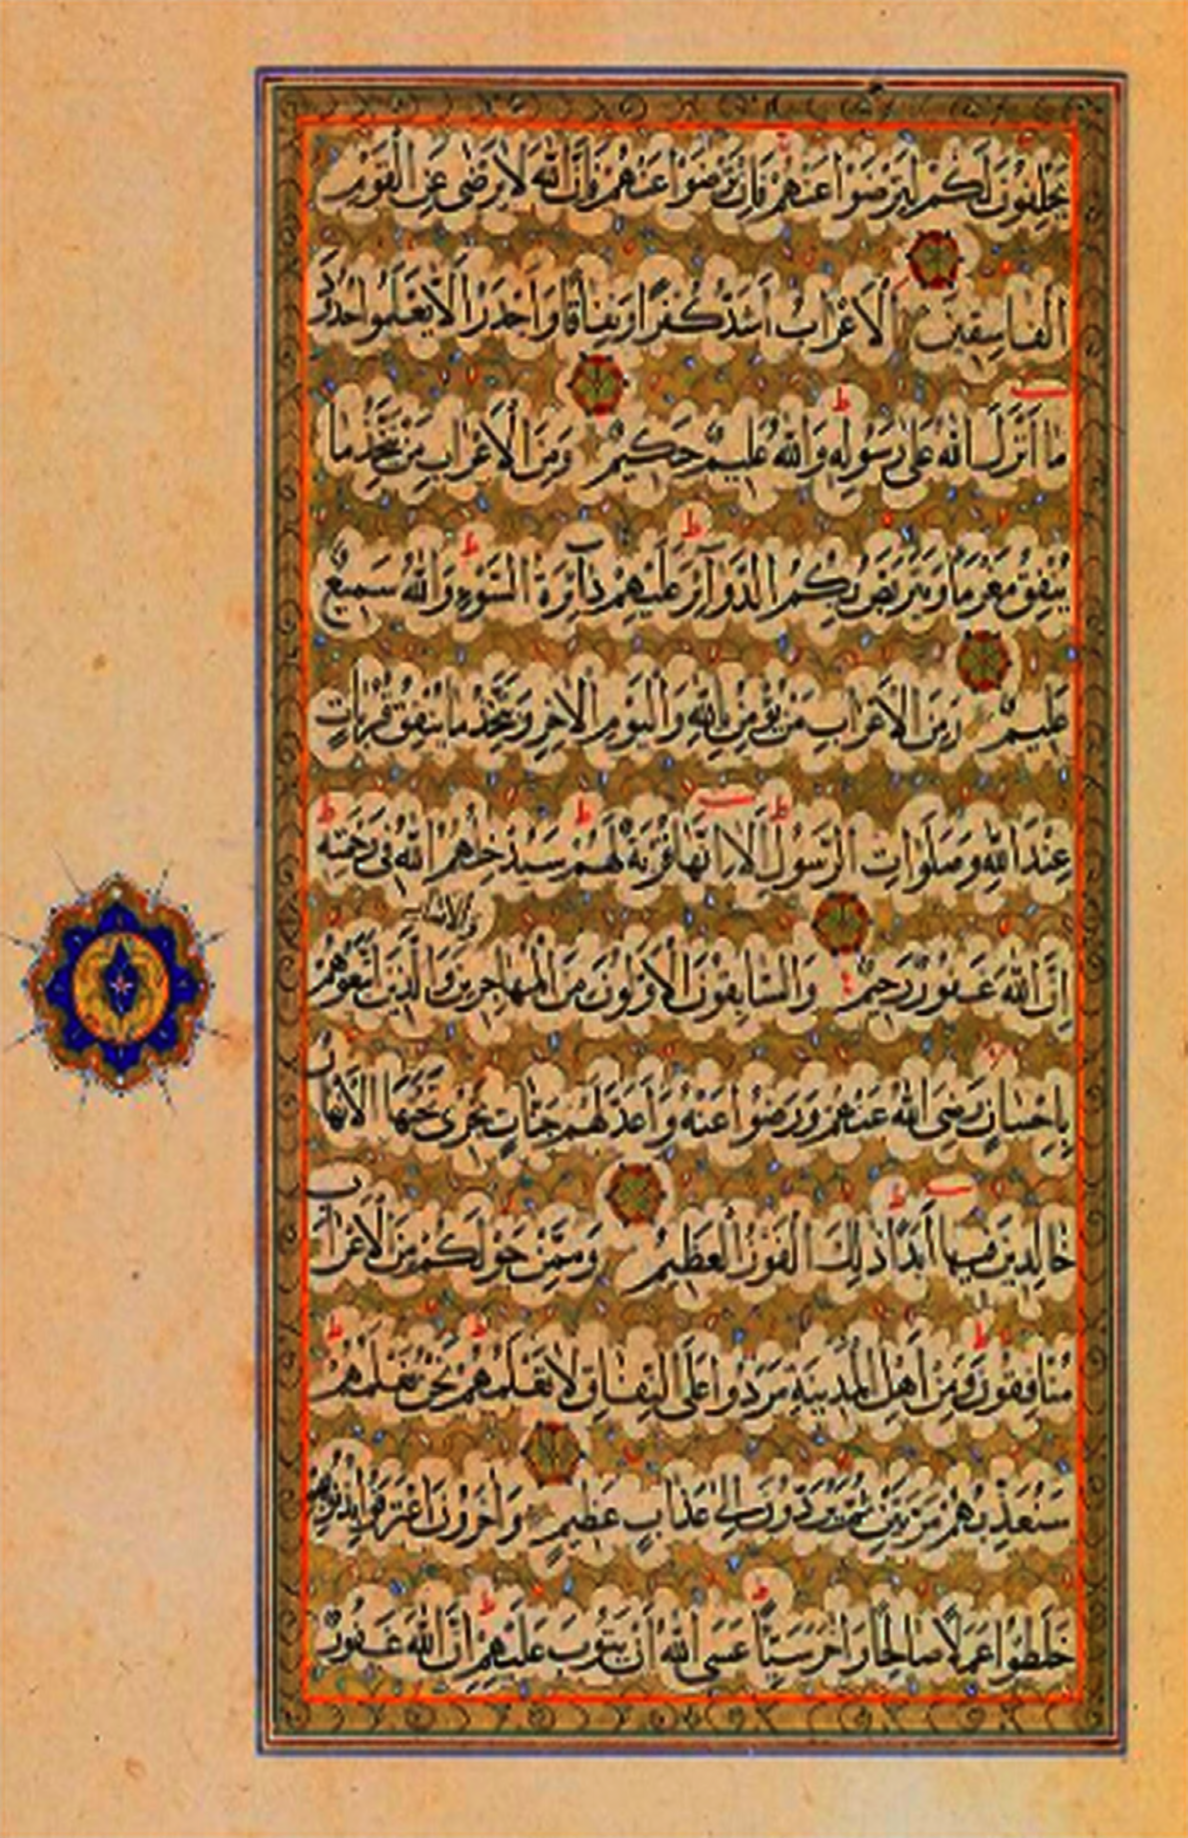 يَحْلِفُونَ لَكُمْ لِتَرْضَوْا عَنْهُمْ فَإِنْ تَرْضَوْا عَنْهُمْ فَإِنَّ اللّٰهَ لَا يَرْضٰى عَنِ الْقَوْمِ
الْفَاسِقِينَ الْأَعْرَابُ أَشَدُّ كُفْرًا وَنِفَاقًا وَأَجْدَرُ أَلَّا يَعْلَمُوا حُدُودَ
مَا أَنْزَلَ اللّٰهُ عَلٰى رَسُولِهِ ط وَاللّٰهُ عَلِيمٌ حَكِيمٌ وَمِنَ الْأَعْرَابِ مَنْ يَتَّخِذُ مَا
يُنْفِقُ مَغْرَمًا وَيَتَرَبَّصُ بِكُمُ الدَّوَآئِرَ ط عَلَيْهِمْ دَآئِرَةُ السَّوْءِ ط وَاللّٰهُ سَمِيعٌ
عَلِيمٌ وَمِنَ الْأَعْرَابِ مَنْ يُؤْمِنُ بِاللّٰهِ وَالْيَوْمِ الْآخِرِ وَيَتَّخِذُ مَا يُنْفِقُ قُرُبَاتٍ
عِنْدَ اللّٰهِ وَصَلَوَاتِ الرَّسُولِ ط أَلَا إِنَّهَا قُرْبَةٌ لَهُمْ ط سَيُدْخِلُهُمُ اللّٰهُ فِي رَحْمَتِهِ ط
إِنَّ اللّٰهَ غَفُورٌ رَحِيمٌ وَالسَّابِقُونَ الْأَوَّلُونَ مِنَ الْمُهَاجِرِينَ وَالْأَنْصَارِ وَالَّذِينَ اتَّبَعُوهُمْ
بِإِحْسَانٍ رَضِيَ اللّٰهُ عَنْهُمْ وَرَضُوا عَنْهُ وَأَعَدَّ لَهُمْ جَنَّاتٍ تَجْرِي تَحْتَهَا الْأَنْهَارُ
خَالِدِينَ فِيهَا أَبَدًا ط ذٰلِكَ الْفَوْزُ الْعَظِيمُ وَمِمَّنْ حَوْلَكُمْ مِنَ الْأَعْرَابِ
مُنَافِقُونَ ط وَمِنْ أَهْلِ الْمَدِينَةِ مَرَدُوا عَلَى النِّفَاقِ لَا تَعْلَمُهُمْ ط نَحْنُ نَعْلَمُهُمْ ط
سَنُعَذِّبُهُمْ مَرَّتَيْنِ ثُمَّ يُرَدُّونَ إِلٰى عَذَابٍ عَظِيمٍ وَآخَرُونَ اعْتَرَفُوا بِذُنُوبِهِمْ
خَلَطُوا عَمَلًا صَالِحًا وَآخَرَ سَيِّئًا ط عَسَى اللّٰهُ أَنْ يَتُوبَ عَلَيْهِمْ ط إِنَّ اللّٰهَ غَفُورٌ